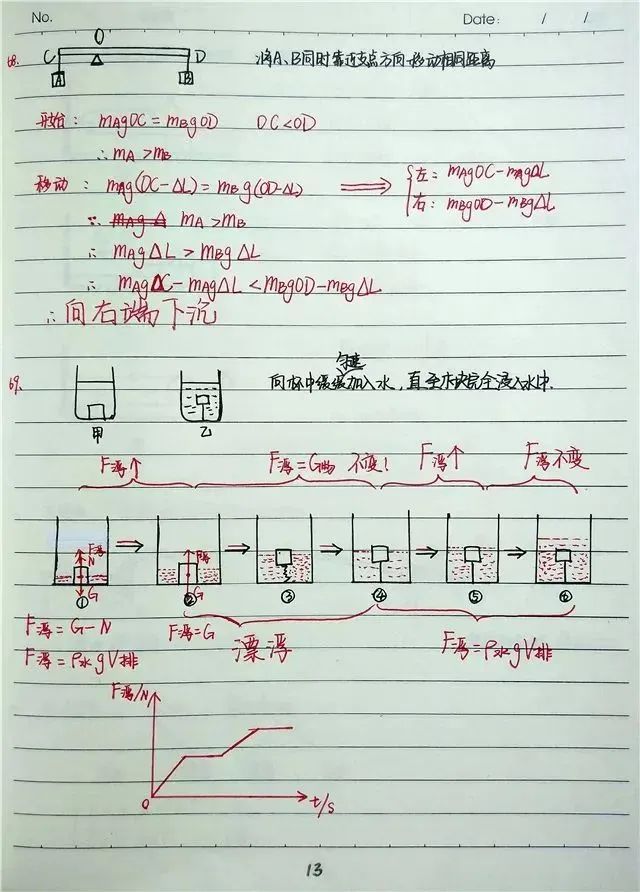 No. Date: / /
68. C O D A B 将A、B同时靠近支点方向移动相同距离
开始: mAgOC = mBgOD OC<OD
∴ mA>mB
移动: mAg(OC-ΔL) = mBg(OD-ΔL) ⟹ 左: mAgOC-mAgΔL
右: mBgOD-mBgΔL
∵ mAgΔ mA>mB
∴ mAgΔL > mBgΔL
∴ mAgOC-mAgΔL < mBgOD-mBgΔL
∴ 向右端下沉
关键
69. 向杯中缓缓加入水,直至木块完全浸入水中.
甲 乙
F浮↑ F浮=G物 不变! F浮↑ F浮不变
F浮 N G ① ⇒ F浮 G ② → ③ → ④ → ⑤ → ⑥
F浮=G-N F浮=G 漂浮 F浮=ρ水gV排
F浮=ρ水gV排
F浮/N
0 t/s
13